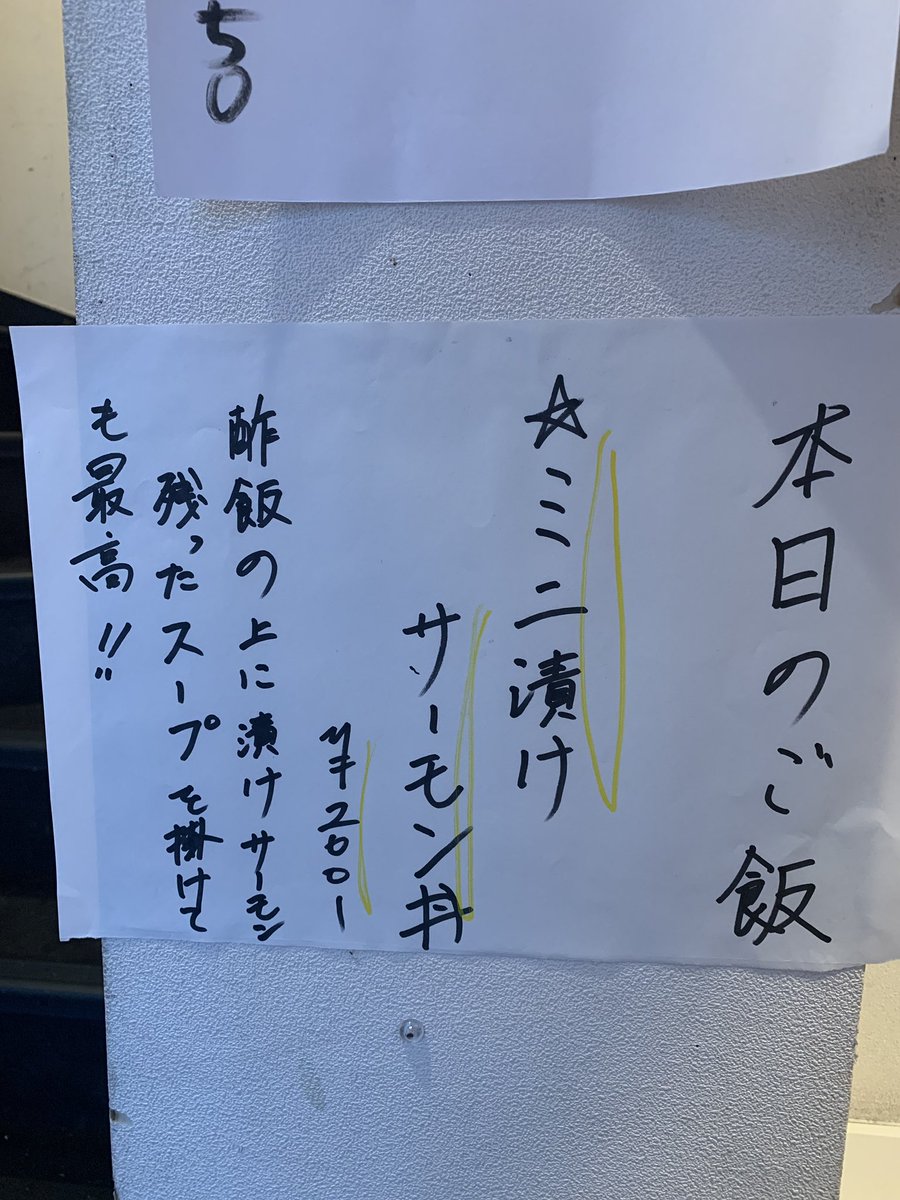 50
本日のご飯
☆ミニ漬け
サーモン丼
¥200ー
酢飯の上に漬けサーモン
残ったスープを掛けて
も最高!!